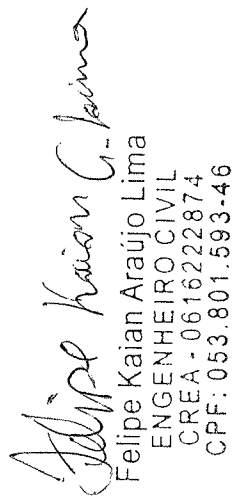 Felipe Kaian G. Lima
Felipe Kaian Araújo Lima
ENGENHEIRO CIVIL
CREA - 0616222874
CPF: 053.801.593-46